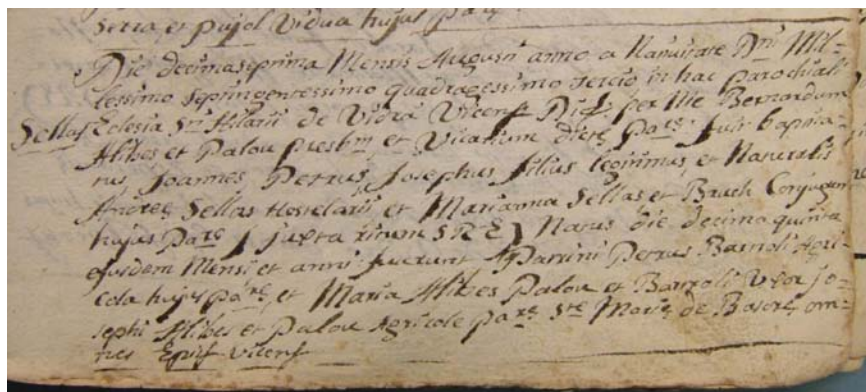 Serra, et Pujol Vidua hujus Paræ
Die decimaseptima Mensis Augusti anno a Nativitate Dni Mil-
lessimo septingentessimo quadragessimo tercio, in hac Parochiali
Sellas Eclesia Sti Hilarii de Vidrá Vicens Dict per Me Bernardum
Alibes et Palou presbm et Vicarium dictæ Paræ fuit baptiza-
tus, Joannes, Petrus, Josephus filius legitimus, et Naturalis
Andreæ Sellas Hostelarii et Marianna Sellas et Bruch Conjugum
hujus Paræ ( juxta ritum S R E ) Natus die decima quinta
ejusdem Mensi et anni fuerunt Patrini Petrus Basñoli Agri-
cola hujus Paræ, et Maria Alibes Palou et Uxor Jo-
sephi Alibes et Palou Agricolæ Paræ Stæ Mariæ de Besora, om-
nes Epus Vicens